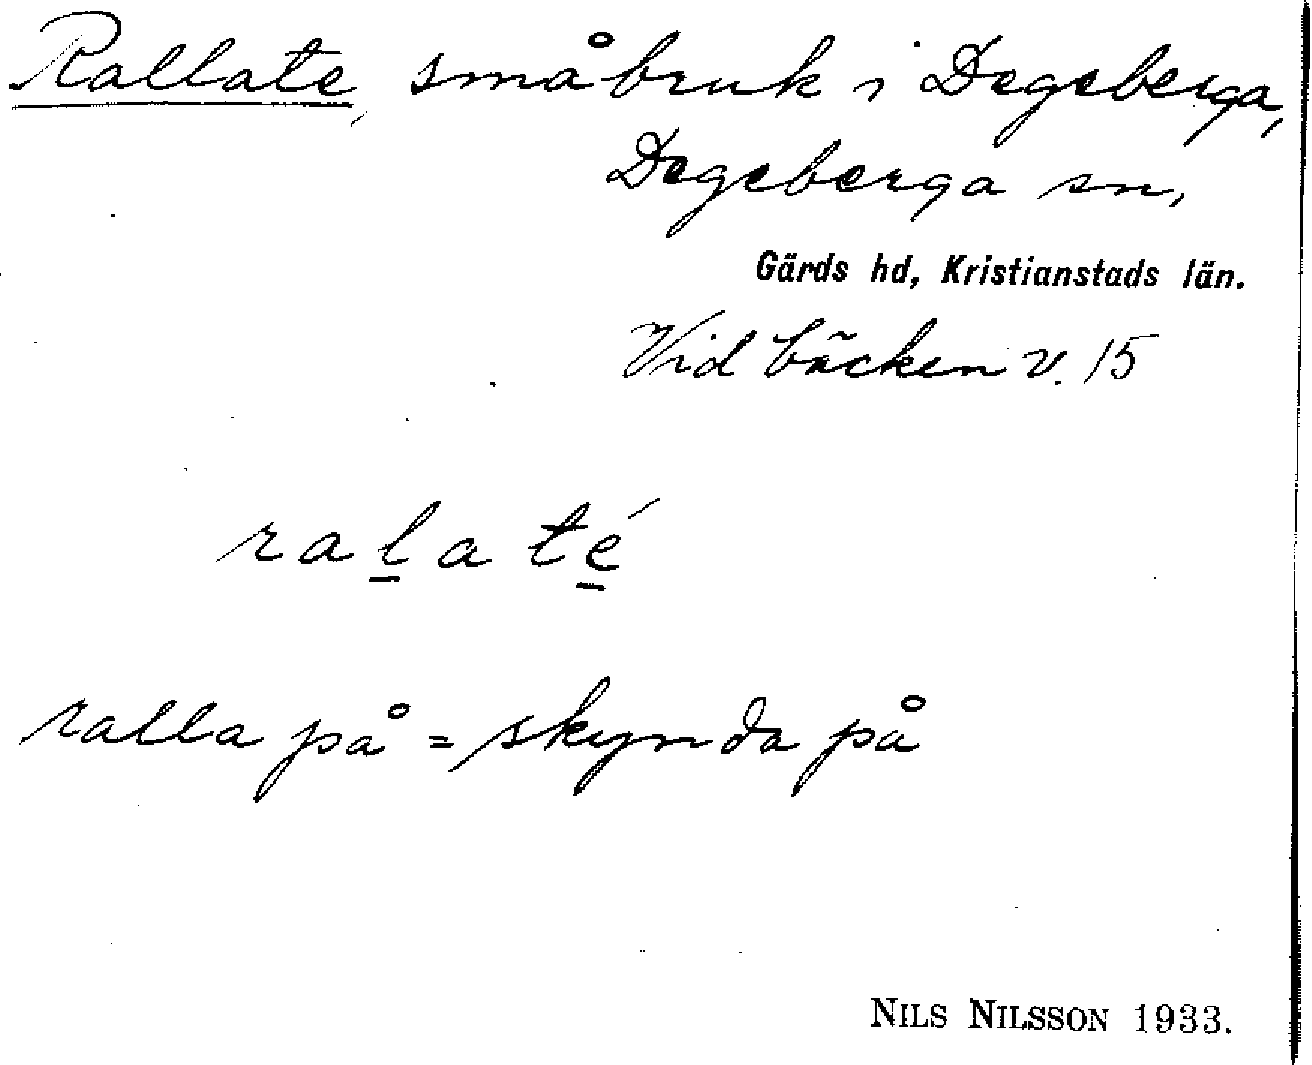 Rallate, småbruk i Degeberga,
Degeberga sn,
Gärds hd, Kristianstads län.
Vid bäcken v. 15
ra̱l̲a té̲
ralla på = skynda på
NILS NILSSON 1933.